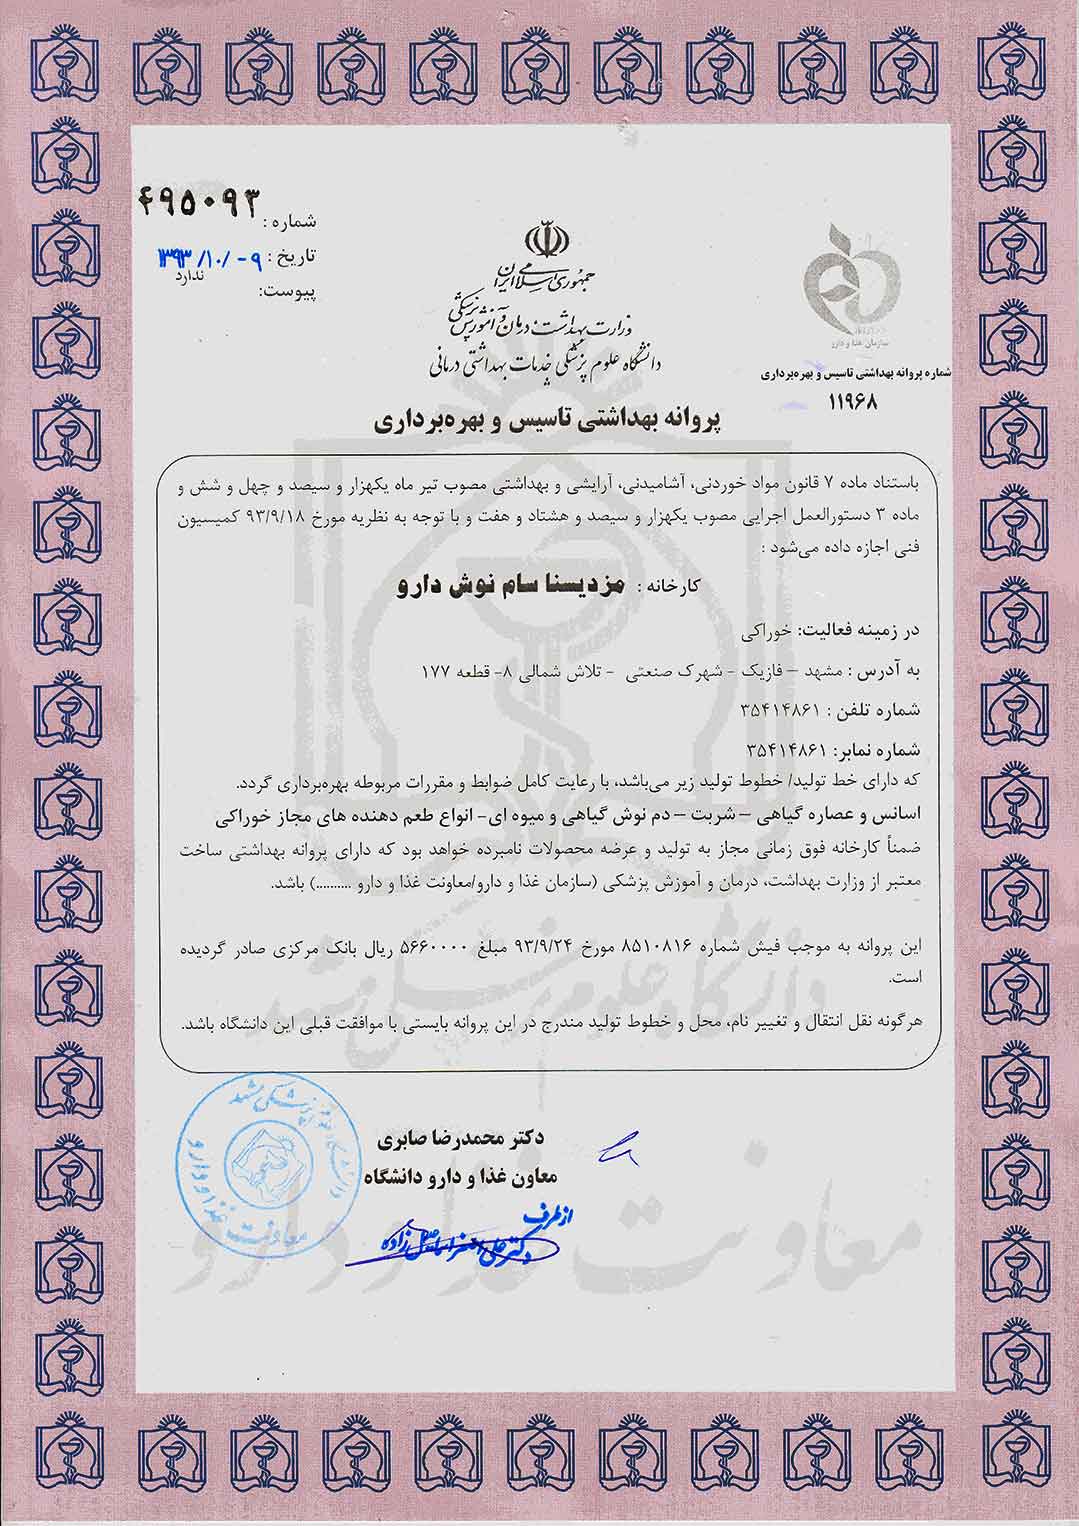 شماره : ۴۹۵۰۹۳
تاریخ : ۱۳۹۳/۱۰/۰۹
پیوست: ندارد
جمهوری اسلامی ایران
وزارت بهداشت، درمان و آموزش پزشکی
دانشگاه علوم پزشکی خدمات بهداشتی درمانی
سازمان غذا و دارو
شماره پروانه بهداشتی تاسیس و بهره‌برداری
۱۱۹۶۸
پروانه بهداشتی تاسیس و بهره‌برداری
باستناد ماده ۷ قانون مواد خوردنی، آشامیدنی، آرایشی و بهداشتی مصوب تیر ماه یکهزار و سیصد و چهل و شش و
ماده ۳ دستورالعمل اجرایی مصوب یکهزار و سیصد و هشتاد و هفت و با توجه به نظریه مورخ ۹۳/۹/۱۸ کمیسیون
فنی اجازه داده می‌شود :
کارخانه : مزدیسنا سام نوش دارو
در زمینه فعالیت: خوراکی
به آدرس : مشهد – فازیک - شهرک صنعتی - تلاش شمالی ۸- قطعه ۱۷۷
شماره تلفن : ۳۵۴۱۴۸۶۱
شماره نمابر: ۳۵۴۱۴۸۶۱
که دارای خط تولید/ خطوط تولید زیر می‌باشد، با رعایت کامل ضوابط و مقررات مربوطه بهره‌برداری گردد.
اسانس و عصاره گیاهی – شربت – دم نوش گیاهی و میوه ای- انواع طعم دهنده های مجاز خوراکی
ضمناً کارخانه فوق زمانی مجاز به تولید و عرضه محصولات نامبرده خواهد بود که دارای پروانه بهداشتی ساخت
معتبر از وزارت بهداشت، درمان و آموزش پزشکی (سازمان غذا و دارو/معاونت غذا و دارو ..........) باشد.
این پروانه به موجب فیش شماره ۸۵۱۰۸۱۶ مورخ ۹۳/۹/۲۴ مبلغ ۵۶۶۰۰۰۰ ریال بانک مرکزی صادر گردیده
است.
هرگونه نقل انتقال و تغییر نام، محل و خطوط تولید مندرج در این پروانه بایستی با موافقت قبلی این دانشگاه باشد.
دکتر محمدرضا صابری
معاون غذا و دارو دانشگاه
از طرف
معاونت غذا و دارو
دانشگاه علوم پزشکی مشهد
معاونت غذا و دارو